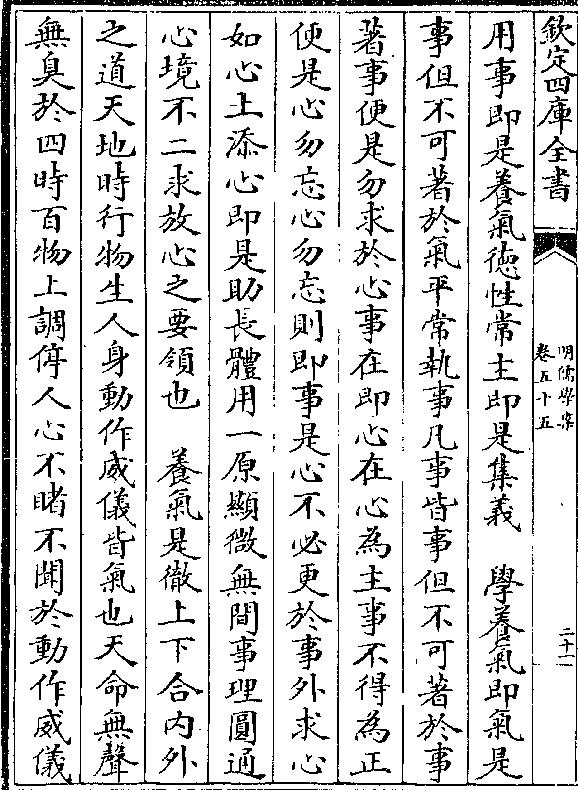 欽定四庫全書
明儒學案
卷五十五
二十一
用事即是養氣德性常主即是集義　學養氣即氣是
事但不可著於氣平常執事凡事皆事但不可著於事
著事便是勿求於心事在即心在心為主事不得為正
便是心勿忘心勿忘則即事是心不必更於事外求心
如心上添心即是助長體用一原顯微無間事理圓通
心境不二求放心之要領也　養氣是徹上下合內外
之道天地時行物生人身動作威儀皆氣也天命無聲
無臭於四時百物上調停人心不睹不聞於動作威儀